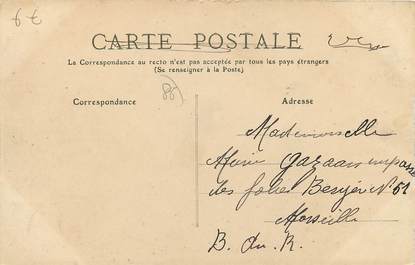 CARTE POSTALE
La Correspondance au recto n'est pas acceptée par tous les pays étrangers
(Se renseigner à la Poste)
Correspondance
Adresse
86
Mademoiselle
impasse
des folies Bergère N° 51
Marseille
B. du. R.